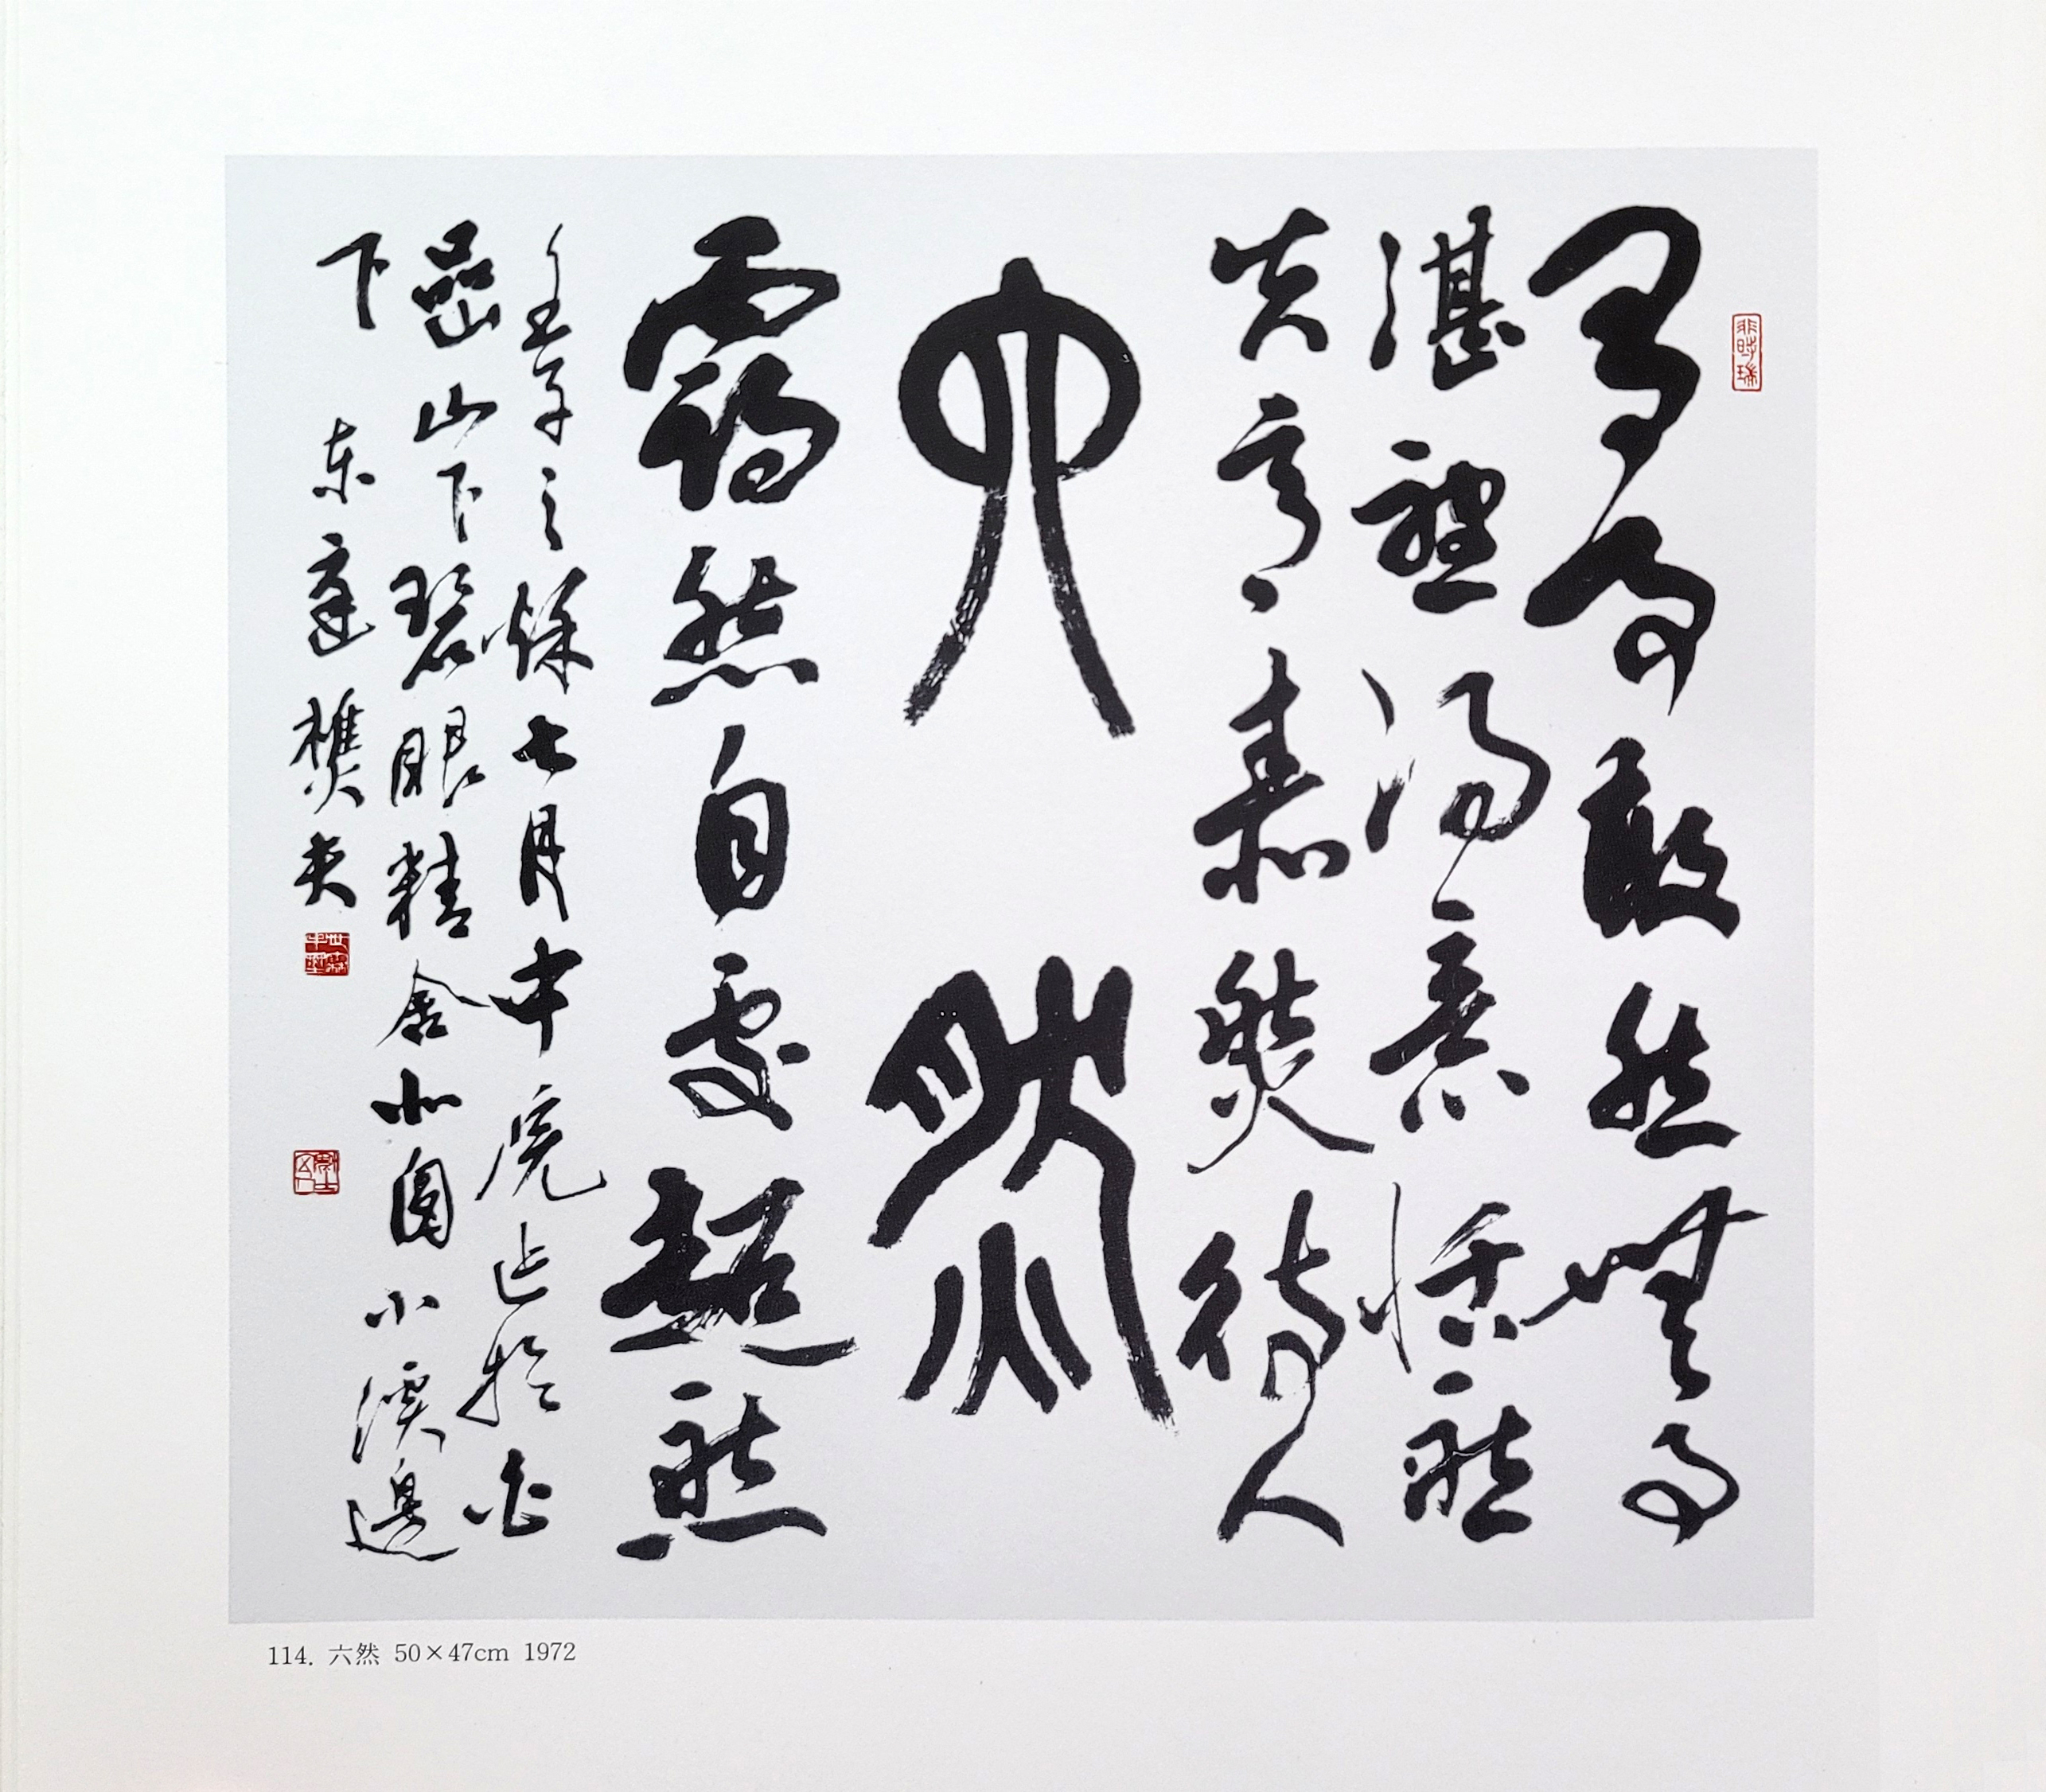 有事敢然無事
湛然得意恬然
失意泰然待人
六然
靄然自處超然
壬子之秋七月中浣止於白
嵒山下碧眼精舍北園小溪邊
下 东庭樵夫
114. 六然 50×47cm 1972